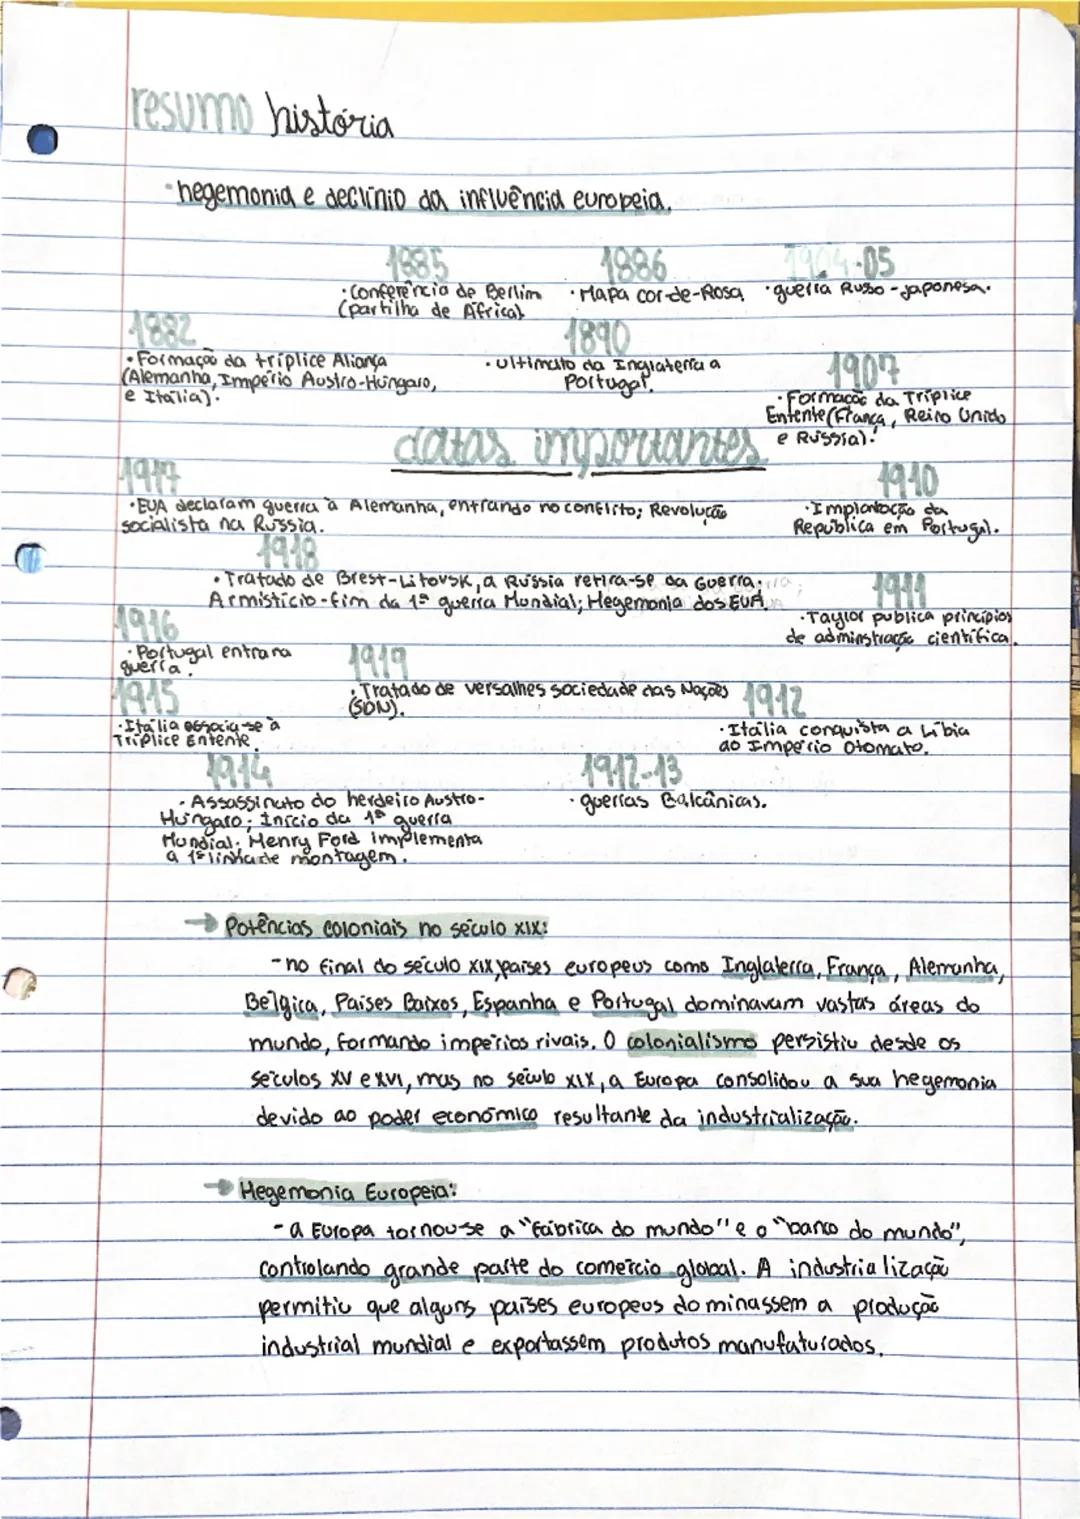 resumo história
·hegemonia e declínio da influência europeia.
1885
·Conferência de Berlim
(partilha de África)
1886
·Mapa cor-de-Rosa
1904-05
·guerra Russo-Japonesa.
1882
·Formação da tríplice Aliança
(Alemanha, Império Austro-Húngaro,
e Itália).
1890
·ultimato da Inglaterra a
Portugal.
1907
·Formação da Tríplice
Entente (França, Reino Unido
e Rússia).
datas importantes
1917
·EUA declaram guerra à Alemanha, entrando no conflito; Revolução
socialista na Rússia.
1910
·Implantação da
República em Portugal.
1918
·Tratado de Brest-Litovsk, a Rússia retira-se da Guerra;
Armistício-fim da 1ª guerra Mundial; Hegemonia dos EUA.
1911
·Taylor publica princípios
de adminstração científica.
1916
·Portugal entra na
guerra.
1919
·Tratado de versalhes sociedade das Nações
(SDN).
1915
·Itália associa-se à
Tríplice Entente.
1912
·Itália conquista a Líbia
ao Império Otomato.
1914
·Assassinato do herdeiro Austro-
Húngaro; Início da 1ª guerra
Mundial; Henry Ford implementa
a 1ª linha de montagem.
1912-13
·guerras Balcânicas.
→ Potências coloniais no século XIX:
-no final do século XIX, países europeus como Inglaterra, França, Alemanha,
Bélgica, Países Baixos, Espanha e Portugal dominavam vastas áreas do
mundo, formando impérios rivais. O colonialismo persistiu desde os
séculos XV e XVI, mas no século XIX, a Europa consolidou a sua hegemonia
devido ao poder económico resultante da industrialização.
→ Hegemonia Europeia:
-a Europa tornou-se a "fábrica do mundo" e o "banco do mundo",
controlando grande parte do comércio global. A industrialização
permitiu que alguns países europeus dominassem a produção
industrial mundial e exportassem produtos manufaturados.